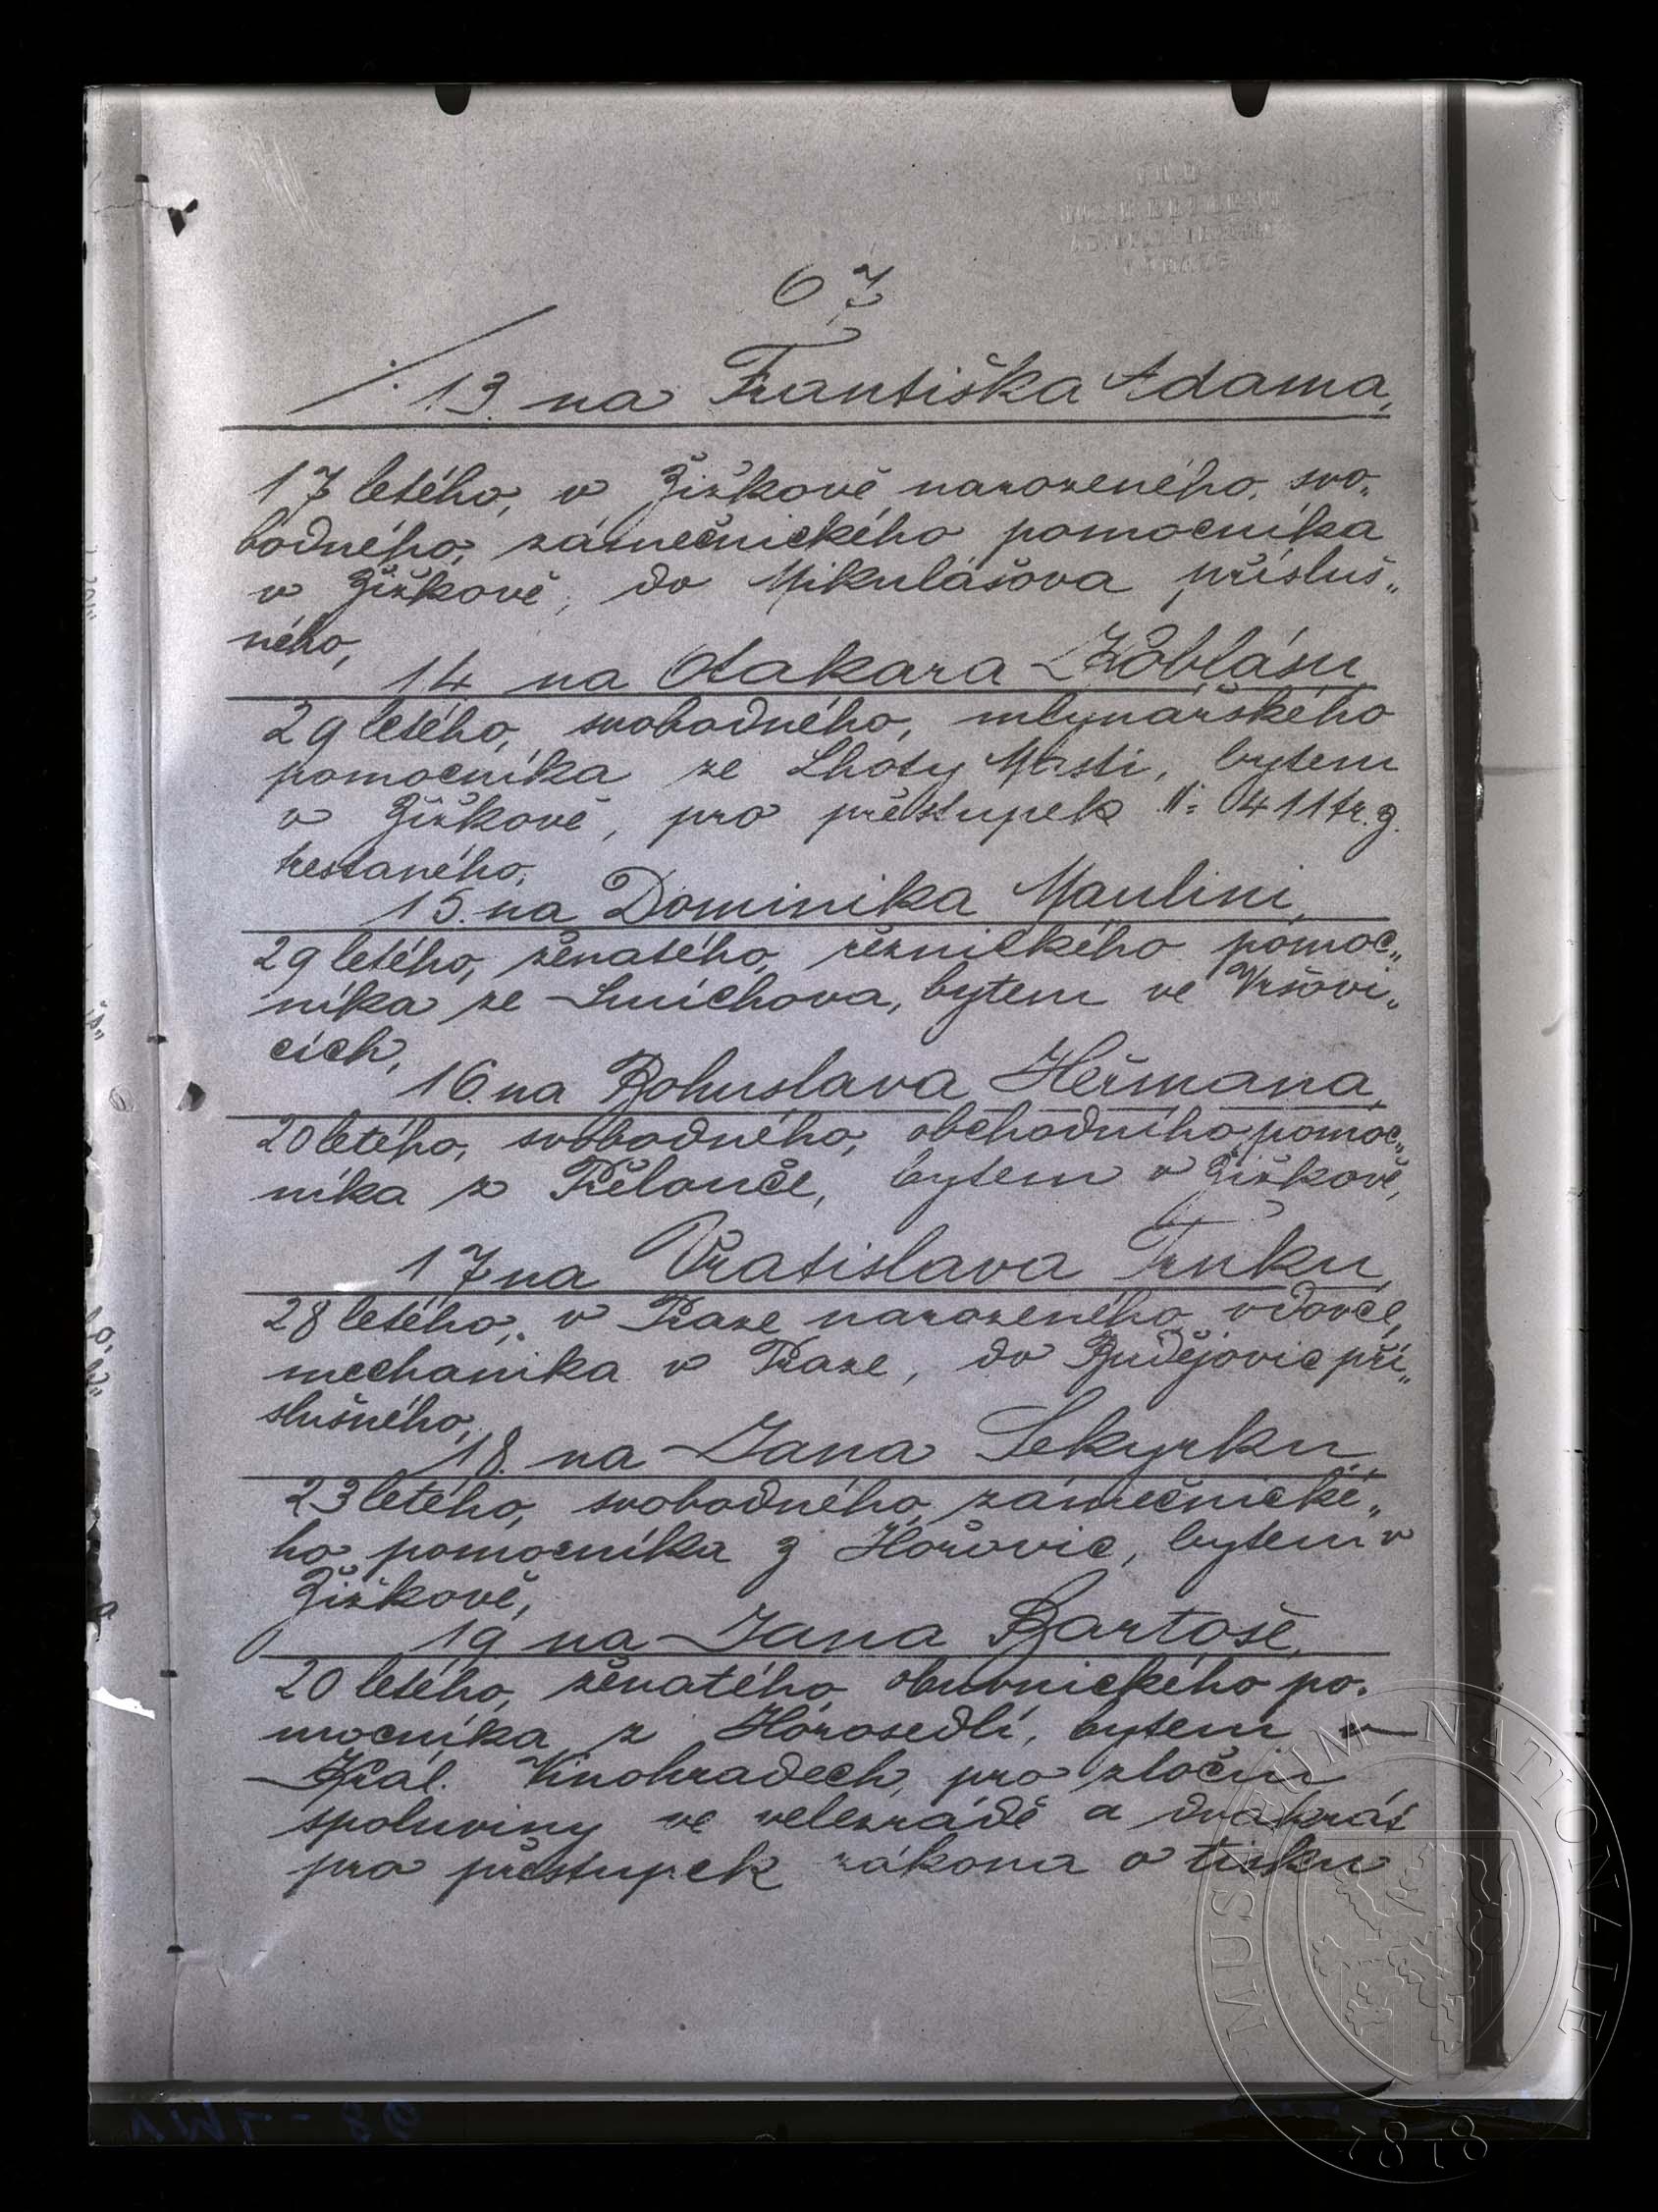 67
./. 13. na Františka Adama,
17 letého, v Žižkově narozeného, svo„
bodného, zámečnického pomocníka
v Žižkově, do Mikulášova přísluš„
ného,
14 na Otakara Koblásu
29 letého, svobodného, mlynářského
pomocníka ze Lhoty Mrsti, bytem
v Žižkově, pro přestupek 411 tr. z.
trestaného,
15. na Dominika Maulini,
29 letého, ženatého, řeznického pomoc„
níka ze Smíchova, bytem ve Vršovi„
cích,
16. na Bohuslava Heřmana,
20 letého, svobodného, obchodního pomoc„
níka z Přelouče, bytem v Žižkově,
17 na Vratislava Trnku,
28 letého, v Praze narozeného vdovce,
mechanika v Praze, do Budějovic pří„
slušného,
18. na Jana Sekyrku,
23 letého, svobodného zámečnické„
ho pomocníka z Hořovic, bytem v
Žižkově,
19 na Jana Bartoše,
20 letého, ženatého obuvnického po„
mocníka z Horosedlí, bytem v
Král. Vinohradech, pro zločin
spoluviny ve velezrádě a dvakrát
pro přestupek zákona o tisku
MUSEUM NATIONALE
1818